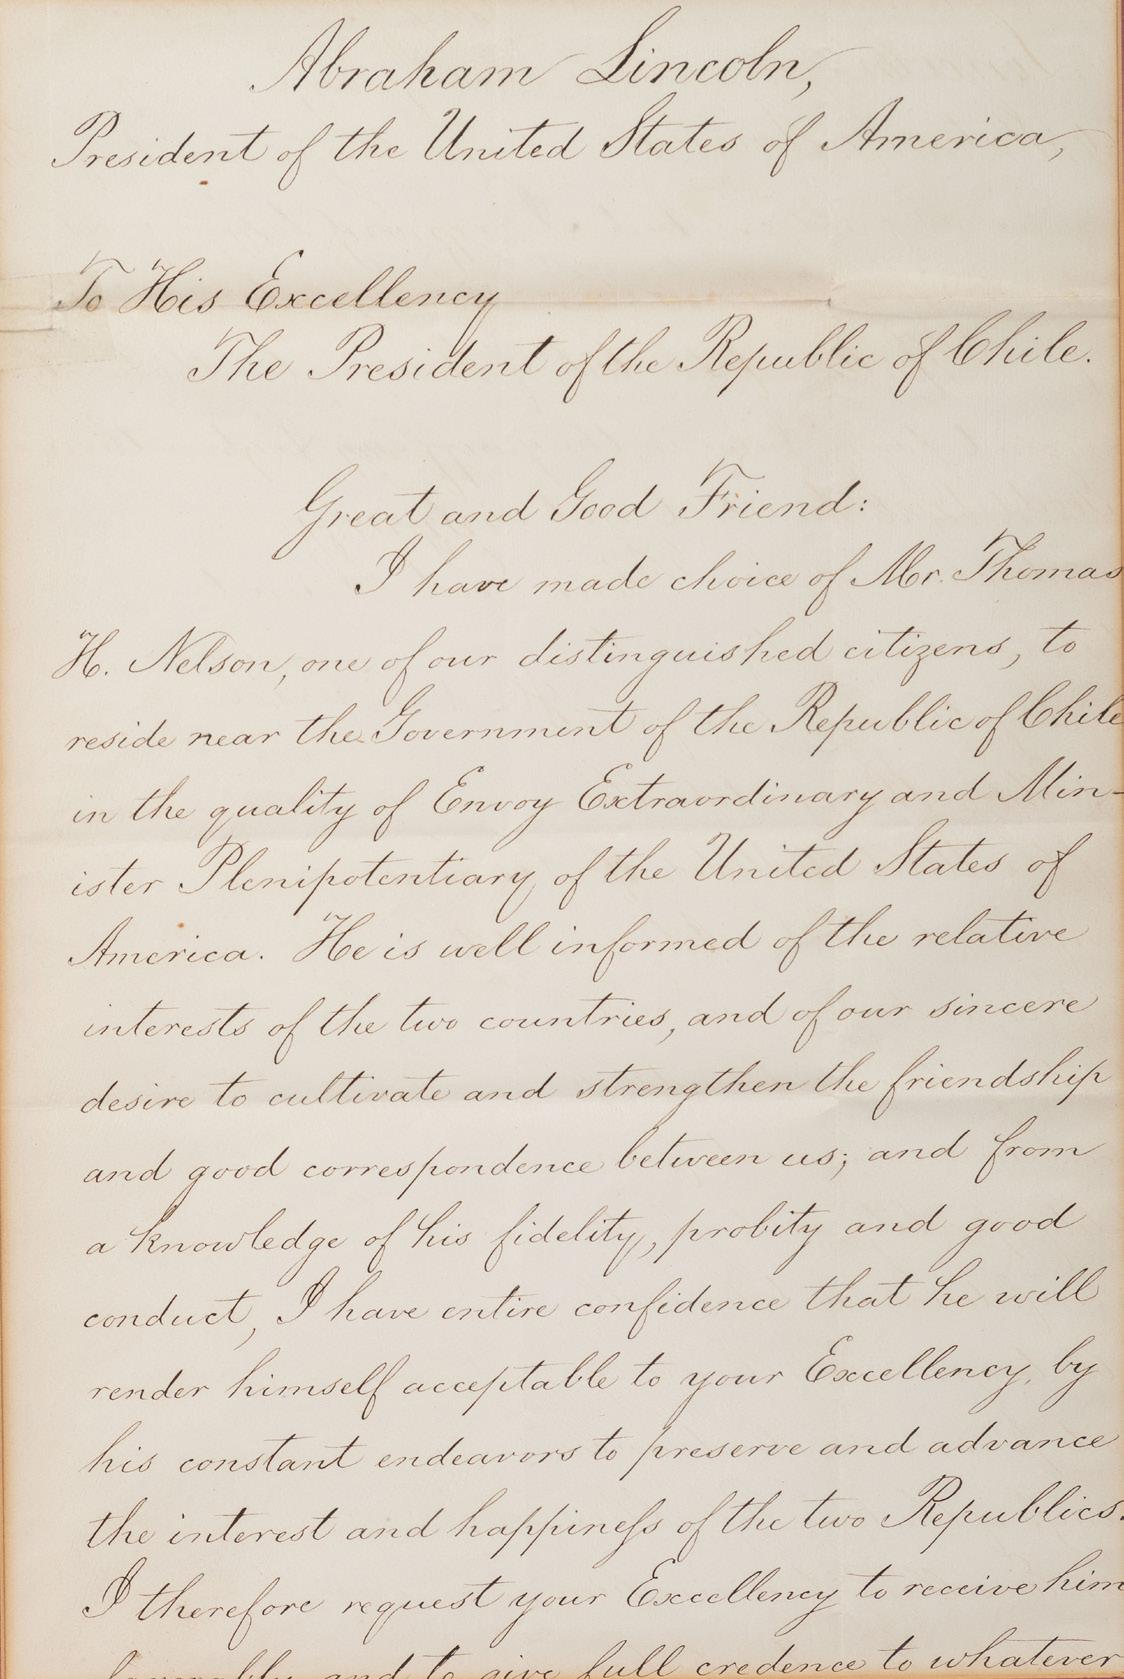 Abraham Lincoln,
President of the United States of America,
To His Excellency
The President of the Republic of Chile.
Great and Good Friend:
I have made choice of Mr. Thomas
H. Nelson, one of our distinguished citizens, to
reside near the Government of the Republic of Chile
in the quality of Envoy Extraordinary and Min-
ister Plenipotentiary of the United States of
America. He is well informed of the relative
interests of the two countries, and of our sincere
desire to cultivate and strengthen the friendship
and good correspondence between us; and from
a knowledge of his fidelity, probity and good
conduct, I have entire confidence that he will
render himself acceptable to your Excellency, by
his constant endeavors to preserve and advance
the interest and happineſs of the two Republics.
I therefore request your Excellency to receive him
favorably and to give full credence to whatever